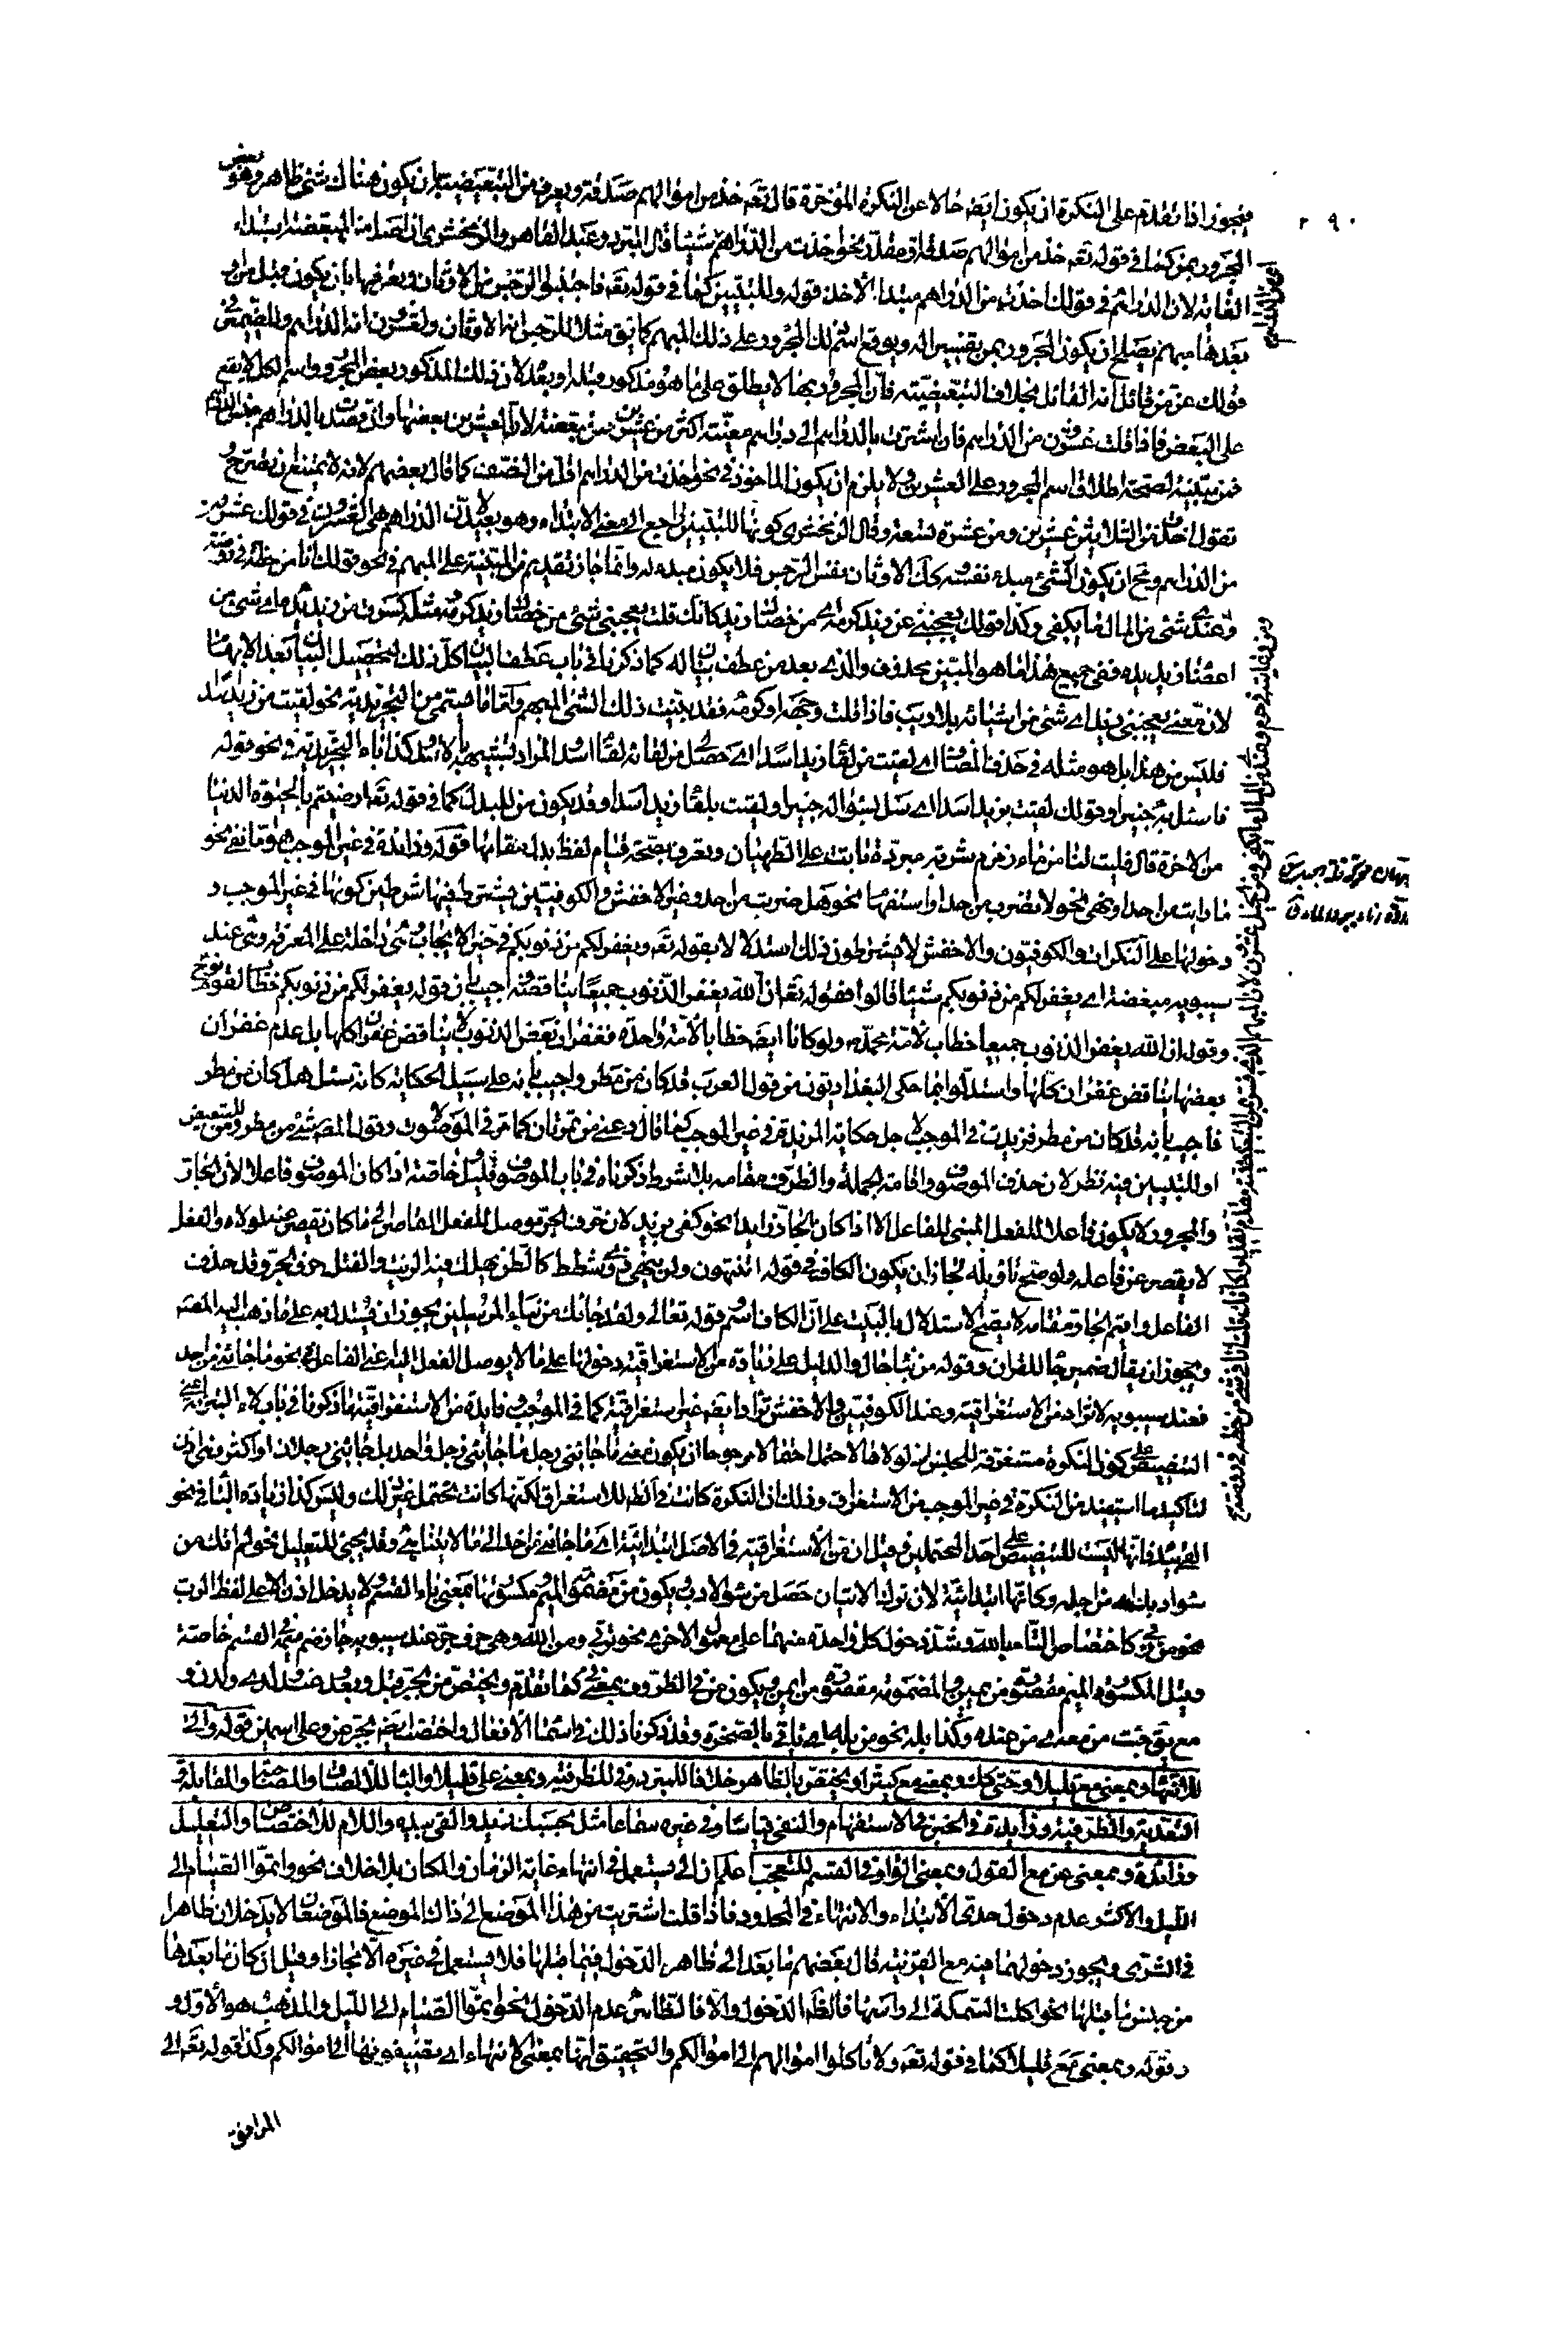 ٢٩٠
فيجوز اذا تقدم على النكرة ان يكون ايضا حالا عن النكرة المؤخرة قال تعه خذ من اموالهم صدقة ويعرف من التبعيضية بان يكون هناك شئ ظاهر وهو بعض
المجرور بمن كما في قوله تعه خذ من اموالهم صدقة او مقدر نحو اخذت من الدراهم شيئا قال المبرد وعبد القاهر والزمخشري ان اصل من المبعضة ابتداء
الغاية لان الدراهم في قولك اخذت من الدراهم مبدأ الاخذ قوله وللتبيين كما في قوله تعه فاجتنبوا الرجس من الاوثان ويعرفها بان يكون قبل من او
بعدها مبهم يصلح ان يكون المجرور بمن تفسيرا له ويوقع اسم ذلك المجرور على ذلك المبهم كما يق مثلا للرجس انها الاوثان ولعشرون انها الدراهم وللضمير في
قولك عز من قائل انه القائل بخلاف التبعيضية فان المجرور بها لا يطلق على ما هو مذكور قبله او بعده لان ذلك المذكور بعض المجرور واسم الكل لا يقع
على البعض فاذا قلت عشرون من الدراهم فان اشرت بالدراهم الى دراهم معينة اكثر من عشرين فمن مبعضة لان العشرين بعضها وان قصدت بالدراهم جنس الدراهم
فمن مبينة لصحة اطلاق اسم المجرور على العشرين ولا يلزم ان يكون الماخوذ في نحو اخذت من الدراهم اقل من النصف كما قال بعضهم لانه لا يمتنع ان يصرح و
تقول اخذت من الثلاثين عشرين ومن عشرة تسعة وقال الزمخشري كونها للتبيين راجع الى معنى الابتداء وهو بعيد لان الدراهم هي العشرون في قولك عشرون
من الدراهم ومح ان يكون الشئ مبدء نفسه وكك الاوثان نفس الرجس فلا يكون مبدء له وانما جاز تقديم من المبينة على المبهم في نحو قولك انا من خطه في روضة
وعندي شئ من المال ما يكفي وكذا قولك يعجبني من زيد كرمه اي من خصال زيد كانك قلت يعجبني شئ من خصال زيد كرمه مثله كسرت من زيد يده اي شئ من
اعضاء زيد يده ففي جميع هذا ما هو المبين محذوف والذي بعد من عطف بيان له كما ذكرنا في باب عطف البيان كل ذلك لتحصيل البيان بعد الابهام
لان معنى يعجبني زيد اي شئ من اشيائه بلا ريب فاذا قلت وجهه او كرمه فقد بينت ذلك الشئ المبهم واما ما سمي من التجريدية نحو لقيت من زيد اسدا
فليس من هذا بل هو مثله في حذف المضاف اي لقيت من لقاء زيد اسدا اي حصل من لقائه لقاء اسد والمراد تشبيهه بالاسد وكذا باء التجريدية في نحو قوله
فاسئل به خبيرا وقولك لقيت بزيد اسدا اي سل بسؤاله خبيرا ولقيت بلقاء زيد اسدا وقد يكون من للبدل كما في قوله تعه ارضيتم بالحيوة الدنيا
من الاخرة قال فليت لنا من ماء زمزم شربة مبردة باتت على الطهيان ويعرف بصحة قيام لفظ بدل مقامها قوله وزائدة في غير الموجب هو اما نفي نحو
ما رايت من احد او نهي نحو لا تضرب من احد او استفهام نحو هل ضربت من احد وغير الاخفش والكوفيين يشترط فيها شرطين كونها في غير الموجب و
دخولها على النكرات والكوفيون والاخفش لا يشترطون ذلك استدلالا بقوله تعه ويغفر لكم من ذنوبكم في حيز الايجاب في داخلة على المعرفة وهي عند
سيبويه مبعضة اي يغفر لكم من ذنوبكم شيئا قالوا فقوله تعه ان الله يغفر الذنوب جميعا يناقضه اجيب بان قوله يغفر لكم من ذنوبكم خطاب لقوم نوح
وقوله ان الله يغفر الذنوب جميعا خطاب لامة محمد ولو كانا ايضا خطابا لامة واحدة فغفران بعض الذنوب لا يناقض غفران كلها بل عدم غفران
بعضها يناقض غفران كلها واستدلوا بما حكى البغداديون من قول العرب قد كان من مطر واجيب بانه على سبيل الحكاية كانه سئل هل كان من مطر
فاجيب بانه قد كان من مطر فزيدت في الموجب لاجل حكاية المزيدة في غير الموجب كما قال دعني من تمرتان كما مر في الموصولات وقول المصنف شئ من مطر ومن للتبعيض
او للتبيين فيه نظر لان حذف الموصوف واقامة الجملة والظرف مقامه بلا شرط ذكرناه في باب الموصوف قليل خاصة اذا كان الموصوف فاعلا لان الجار
والمجرور لا يكون فاعلا للفعل المبني للفاعل الا اذا كان الجار زايدا نحو كفى بزيد لان حرف الجر موصل للفعل القاصر الى ما كان يقصر عنه لولاه والفعل
لا يقصر عن فاعله ولو صح تاويله لجاز ان يكون الكاف في قوله اتنتهون ولن ينهى ذوي شطط كالطعن يهلك فيه الزيت والفتل حرف جر وقد حذف
الفاعل واقيم الجار مقامه لا يصح الاستدلال بالبيت على ان الكاف اسم وقوله تعالى ولقد جائك من نباء المرسلين يجوز ان يستدل به على ما ذهب اليه المصنف
ويجوز ان يقال ضمير جاء للقران وقوله من نباء حال والدليل على زيادة من الاستغراقية دخولها على ما لا يوصل الفعل اليه اعني الفاعل في نحو ما جائني من احد
فعند سيبويه لا تزاد من الا استغراقية وعند الكوفيين والاخفش تزاد ايضا غير استغراقية كما في الموجب وفايدة من الاستغراقية ما ذكرنا في باب لاء التبرئة اعني
التنصيص على كون النكرة مستغرقة للجنس اذ لولاها لاحتمل احتمالا مرجوحا ان يكون معنى ما جائني رجل ما جائني رجل واحد بل جائني رجلان او اكثر فهي اذن
لتاكيد ما استفيد من النكرة في غير الموجب من الاستغراق وذلك ان النكرة كانت في الظه للاستغراق لكنها كانت تحتمل غير ذلك وليس كذا زيادة الباء في نحو
القي بيده فانها ليست للتنصيص على احد المحتملين وقيل ان من الاستغراقية في الاصل ابتدائية اي ما جائني من احد الى ما لا يتناهى وقد يجئ للتعليل نحو لم اتك من
سوء ادبك اي من اجله وكانها ابتدائية لان ترك الاتيان حصل من سوء الادب ويكون من مضموم الميم ومكسورها بمعنى باء القسم ولا يدخل اذن الا على لفظ الرب
نحو من ربي كاختصاص التاء بالله وشذ دخول كل واحدة منهما على معمول الاخرى نحو تربي ومن الله وهي حرف جر عند سيبويه جاز ضم ميمه في القسم خاصة
وقيل المكسورة الميم مقصورة من يمين والمضمومة مقصورة من ايمن ويكون من في الظروف بمعنى في كما تقدم ويختص من بجر قبل وبعد وعند ولدى ولدن و
مع يق جئت من معه اي من عنده وكذا بله نحو من بله اي تاتي بالصخرة وقد ذكرنا ذلك في اسماء الافعال واختص ايضا بجر عن وعلى اسمين قوله والى
للانتهاء وبمعنى مع قليلا وحتى كك وبمعنى مع كثيرا ويختص بالظاهر خلافا للمبرد وفي للظرفية وبمعنى على قليلا والباء للالصاق والاستعانة والمصاحبة والمقابلة و
التعدية والظرفية وزايدة في الخبر في الاستفهام والنفي قياسا وفي غيره سماعا مثل بحسبك زيد والقى بيده واللام للاختصاص والتعليل
وزائدة وبمعنى عن مع القول وبمعنى الواو في القسم للتعجب اعلم ان الى يستعمل في انتهاء غاية الزمان والمكان بلا خلاف نحو واتموا الصيام الى
الليل والاكثر عدم دخول حدي الابتداء والانتهاء في المحدود فاذا قلت اشتريت من هذا الموضع الى ذلك الموضع فالموضعان لا يدخلان ظاهرا
في الشرى ويجوز دخولهما فيه مع القرينة قال بعضهم ما بعد الى ظاهر الدخول فيما قبلها فلا يستعمل في غيره الا مجازا وقيل ان كان ما بعدها
من جنس ما قبلها نحو اكلت السمكة الى راسها فالظه الدخول والا فالظاهر عدم الدخول نحو اتموا الصيام الى الليل والمذهب هو الاول و
قوله وبمعنى مع قليلا كما في قوله تعه ولا تاكلوا اموالهم الى اموالكم والتحقيق انها بمعنى الانتهاء اي تضيفونها الى اموالكم وكذا قوله تعه الى
المرافق